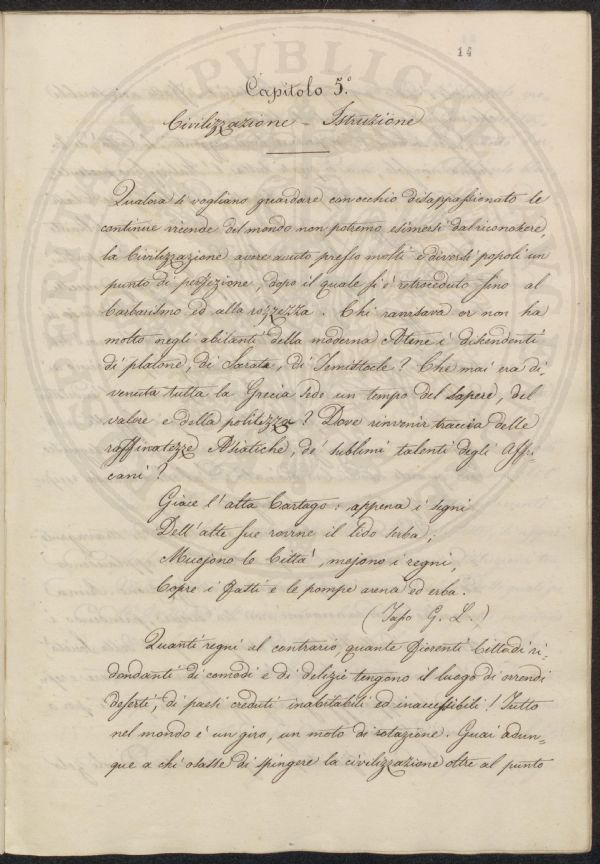 14
Capitolo 5.°
Civilizzazione - Istruzione
Qualora si vogliano guardare con occhio disappassionato le
continue vicende del mondo non potremo esimersi dal riconoscere,
la Civilizzazione avere avuto presso molti e diversi popoli un
punto di perfezione, dopo il quale si è retroceduto fino al
barbarismo ed alla rozzezza. Chi ravvisava or non ha
molto negli abitanti della moderna Atene i discendenti
di platone, di Socrate, di Temistocle? Che mai era di,
venuta tutta la Grecia sede un tempo del sapere, del
valore e della politezza? Dove rinvenir traccia delle
raffinatezze Asiatiche, de' sublimi talenti degli Affri-
cani?
Giace l'alta Cartago: appena i segni
Dell'alte sue rovine il lido serba;
Muojono le Città, mojono i regni,
Copre i fatti e le pompe arena ed erba.
(Tasso G. L.)
Quanti regni al contrario, quante fiorenti Città di ri-
dondanti di comodi e di delizie tengono il luogo di orrendi
deserti, di paesi creduti inabitabili ed inaccessibili! Tutto
nel mondo è un giro, un moto di rotazione. Guai adun-
que a chi osasse di spingere la civilizzazione oltre al punto